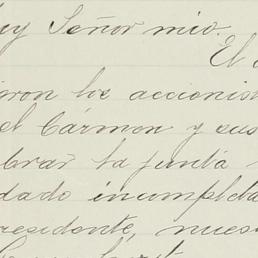 uy Señor mio.
El
iron los accionis
el Cármen y sus
brar la junta
dado incompleta
residente, nues